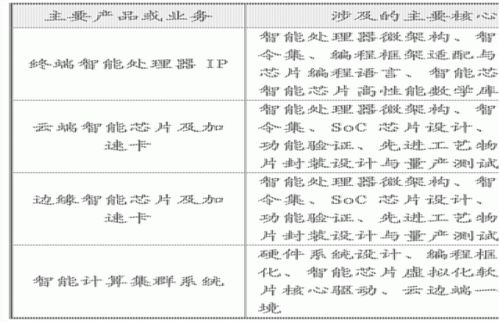 主要产品或业务
涉及的主要核心
终端智能处理器 IP
智能处理器微架构、智
令集、编程框架适配与
芯片编程语言、智能芯
智能芯片高性能数学库
云端智能芯片及加
速卡
智能处理器微架构、智
令集、SoC 芯片设计、
功能验证、先进工艺物
片封装设计与量产测试
边缘智能芯片及加
速卡
智能处理器微架构、智
令集、SoC 芯片设计、
功能验证、先进工艺物
片封装设计与量产测试
智能计算集群系统
硬件系统设计、编程框
化、智能芯片虚拟化软
片核心驱动、云边端一
境